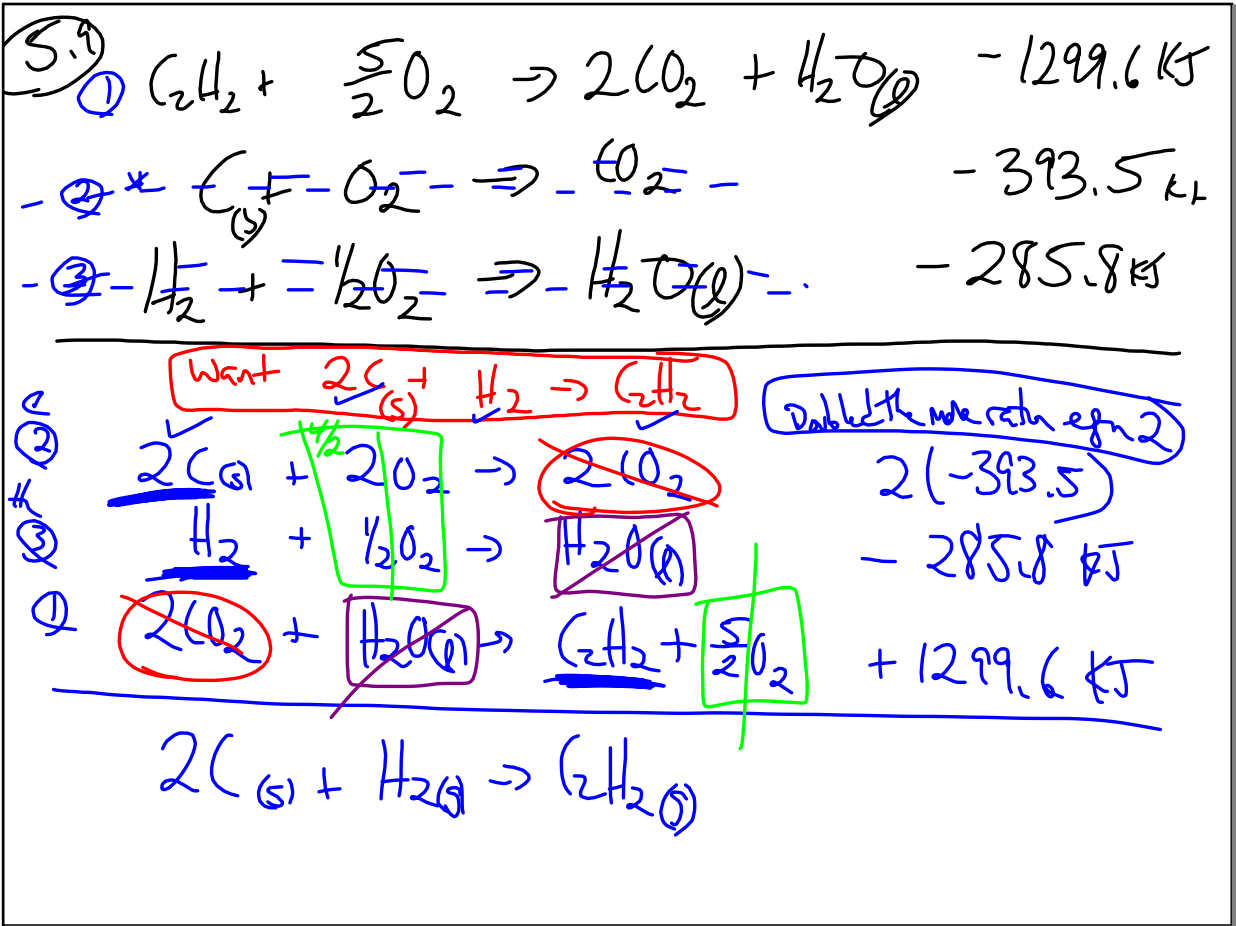 5.9
① C₂H₂ + 5/2 O₂ → 2CO₂ + H₂O(l) -1299.6 KJ
② * C(s) + O₂ → CO₂ -393.5 KJ
③ H₂ + 1/2 O₂ → H₂O(l) -285.8 KJ
Want 2C(s) + H₂ → C₂H₂
Doubled the mole ratio eqn 2
② 2C(s) + 2O₂ → 2CO₂ 2(-393.5)
4/2
③ H₂ + 1/2 O₂ → H₂O(l) - 285.8 KJ
① 2CO₂ + H₂O(l) → C₂H₂ + 5/2 O₂ + 1299.6 KJ
2C(s) + H₂(g) → C₂H₂(g)